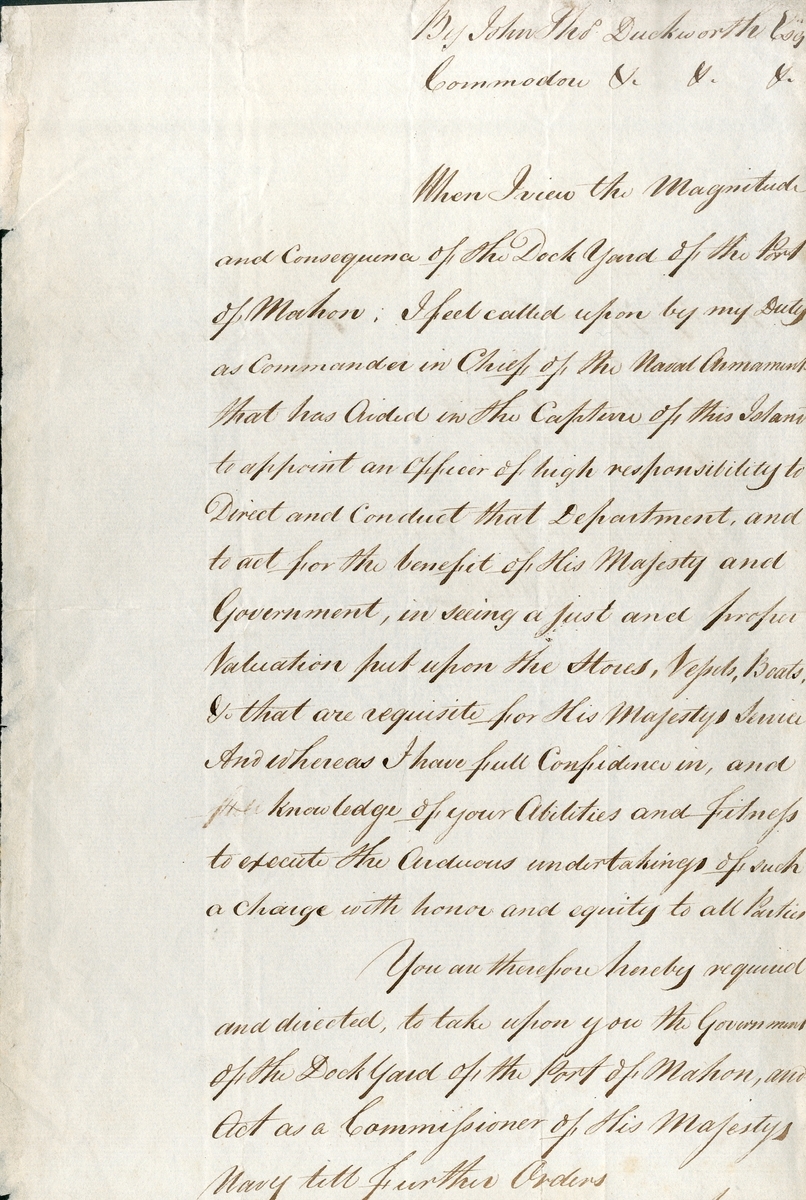 By John Thos Duckworth Esq
Commodore &. &. &.
When I view the Magnitude
and Consequence of the Dock Yard of the Port
of Mahon; I feel called upon by my Duty
as Commander in Chief of the Naval Armament
that has Aided in the Capture of this Island
to appoint an Officer of high responsibility to
Direct and Conduct that Department, and
to act for the benefit of His Majesty and
Government, in seeing a just and proper
Valuation put upon the Stores, Vessels, Boats,
&c that are requisite for His Majestys Service
And whereas I have full Confidence in, and
knowledge of your Abilities and Fitness
to execute the Arduous undertakings of such
a charge with honor and equity to all Parties
You are therefore hereby required
and directed, to take upon you the Government
of the Dock Yard of the Port of Mahon, and
Act as a Commissioner of His Majestys
Navy till Further Orders